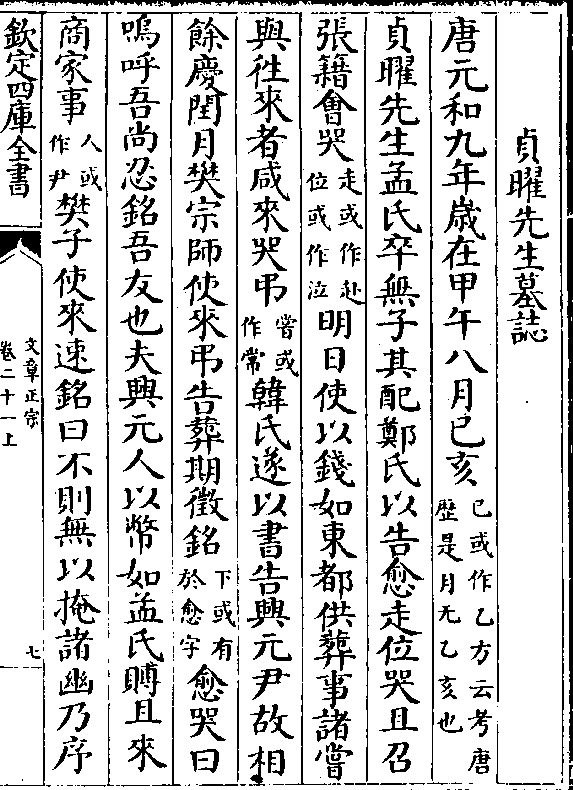 貞曜先生墓誌
唐元和九年歲在甲午八月已亥已或作乙方云考唐歷是月无乙亥也
貞曜先生孟氏卒無子其配鄭氏以告愈走位哭且召
張籍會哭走或作赴位或作泣明日使以錢如東都供葬事諸嘗
與徃來者咸來哭弔嘗或作常韓氏遂以書告興元尹故相
餘慶閏月樊宗師使來弔告葬期徵銘下或有於愈字愈哭曰
嗚呼吾尚忍銘吾友也夫興元人以幣如孟氏賻且來
商家事人或作尹樊子使來速銘曰不則無以掩諸幽乃序
欽定四庫全書
文章正宗
卷二十一上
七